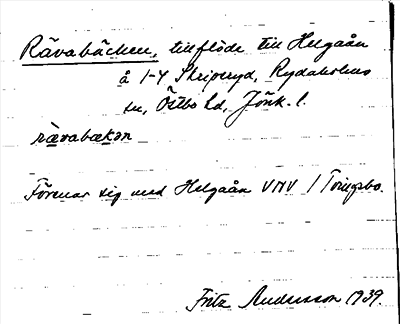 Rävabäcken, tillflöde till Helgaån
å 1-4 Skeppsryd, Rydaholms
sn, Östbo hd, Jönk. l.
ràvabækən
Förenar sig med Helgaån VNV / Toringsbo.
Fritz Andersson 1939.